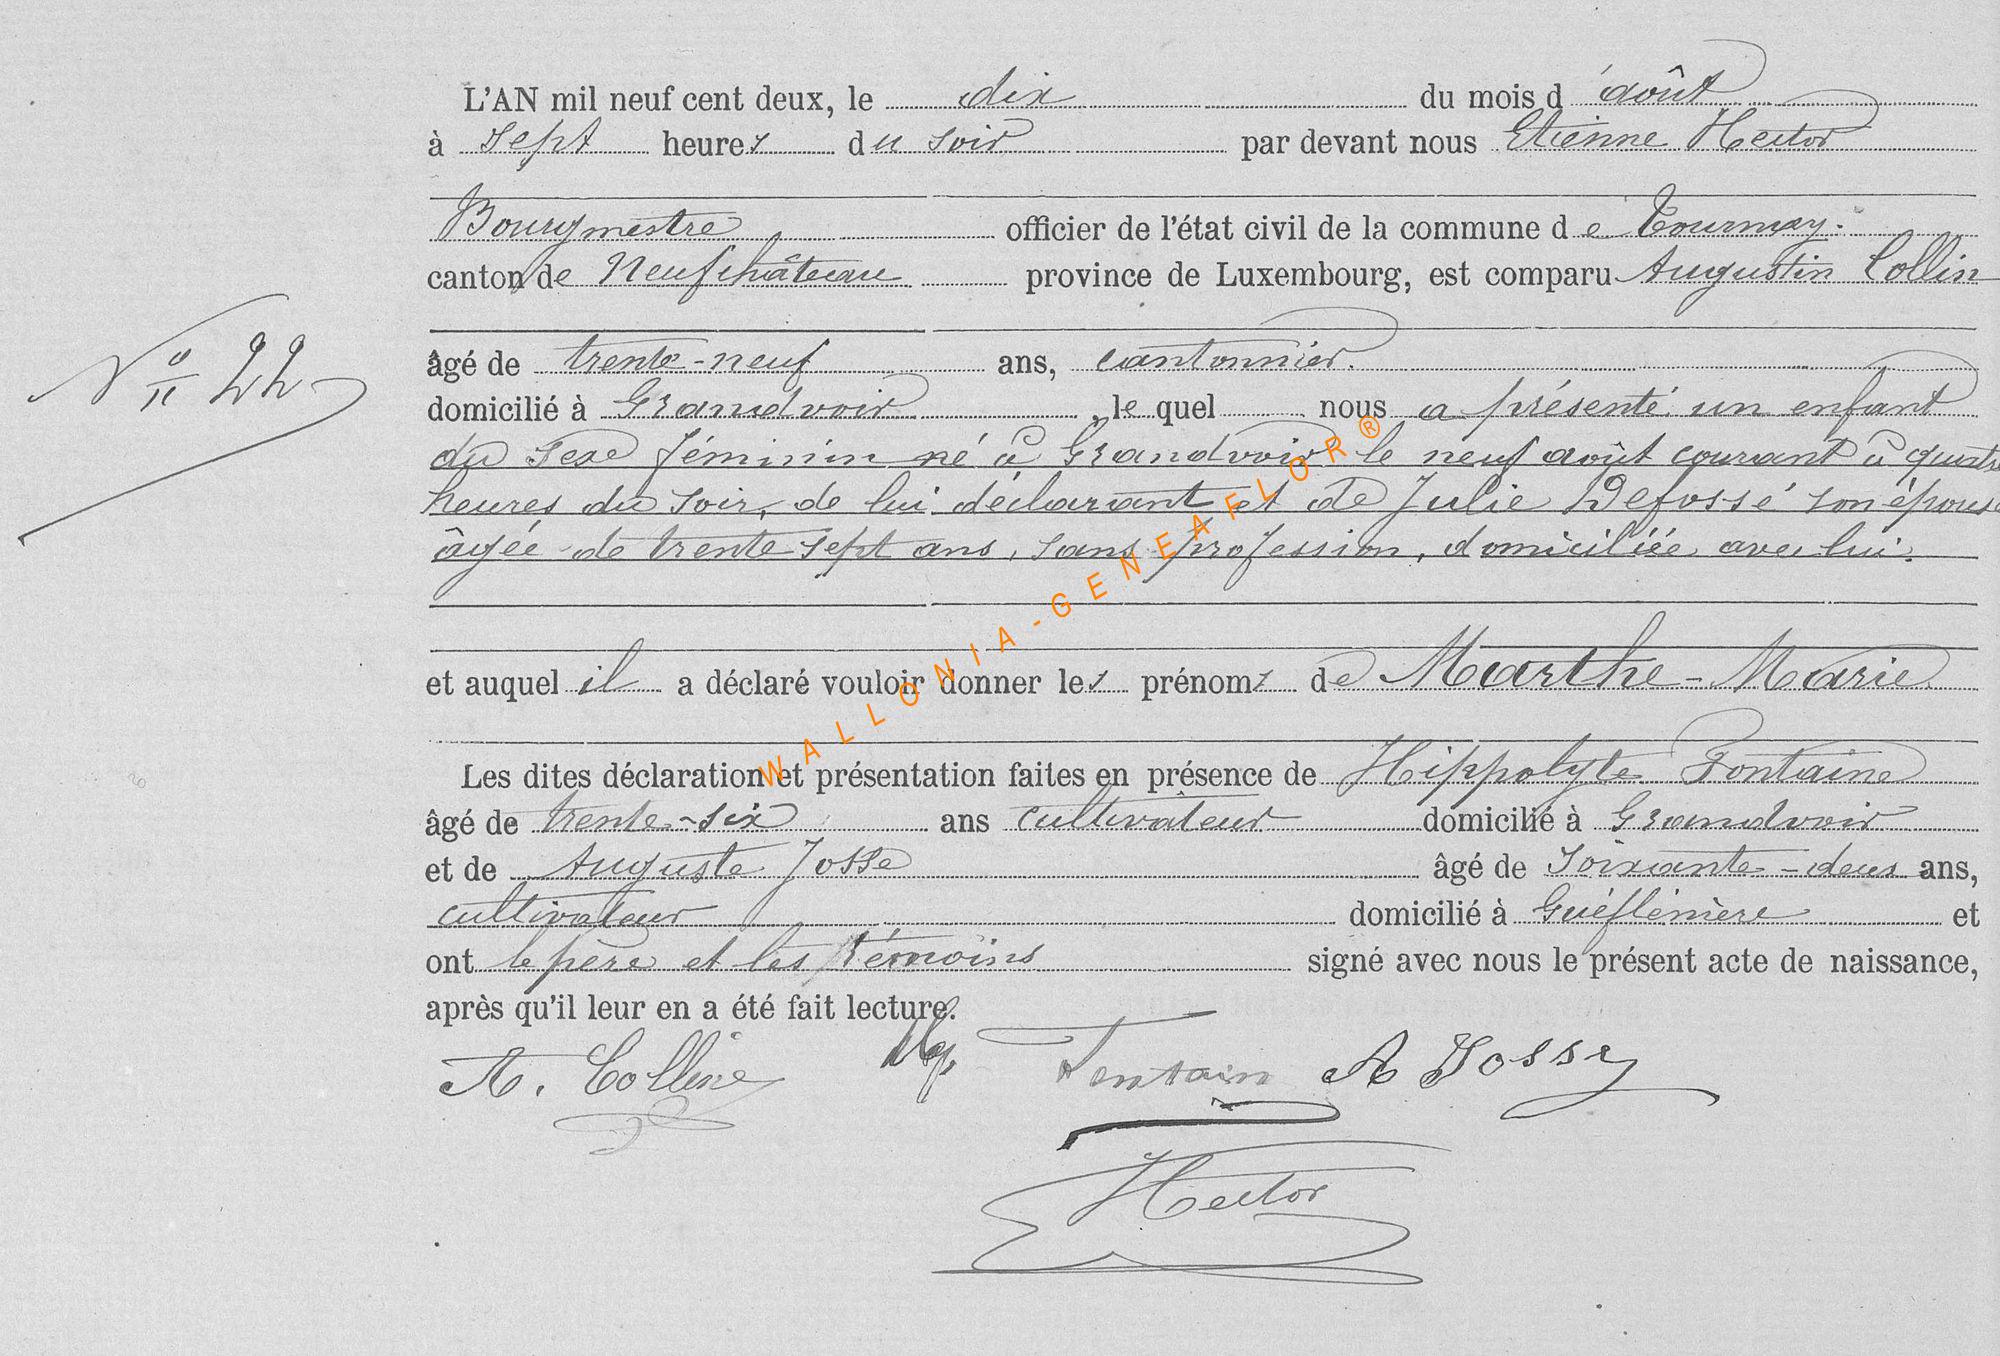 L'AN mil neuf cent deux, le dix du mois d'août
à sept heures du soir par devant nous Etienne Hector
Bourgmestre officier de l'état civil de la commune de Tournay.
canton de Neufchâteau province de Luxembourg, est comparu Augustin Collin
N° 22
âgé de trente-neuf ans, cantonnier.
domicilié à Grandvoir, le quel nous a présenté un enfant
du sexe féminin né à Grandvoir le neuf août courant à quatre
heures du soir, de lui déclarant et de Julie Defossé son épouse
âgée de trente sept ans, sans profession, domiciliée avec lui.
et auquel il a déclaré vouloir donner les prénoms de Marthe-Marie
Les dites déclaration et présentation faites en présence de Hippolyte Fontaine
âgé de trente-six ans cultivateur domicilié à Grandvoir
et de Auguste Josse âgé de soixante-deux ans,
cultivateur domicilié à Gueflénière et
ont le père et les témoins signé avec nous le présent acte de naissance,
après qu'il leur en a été fait lecture.
A. Colline Fontain A Jossy
Hector
WALLONIA-GENEAFLOR®